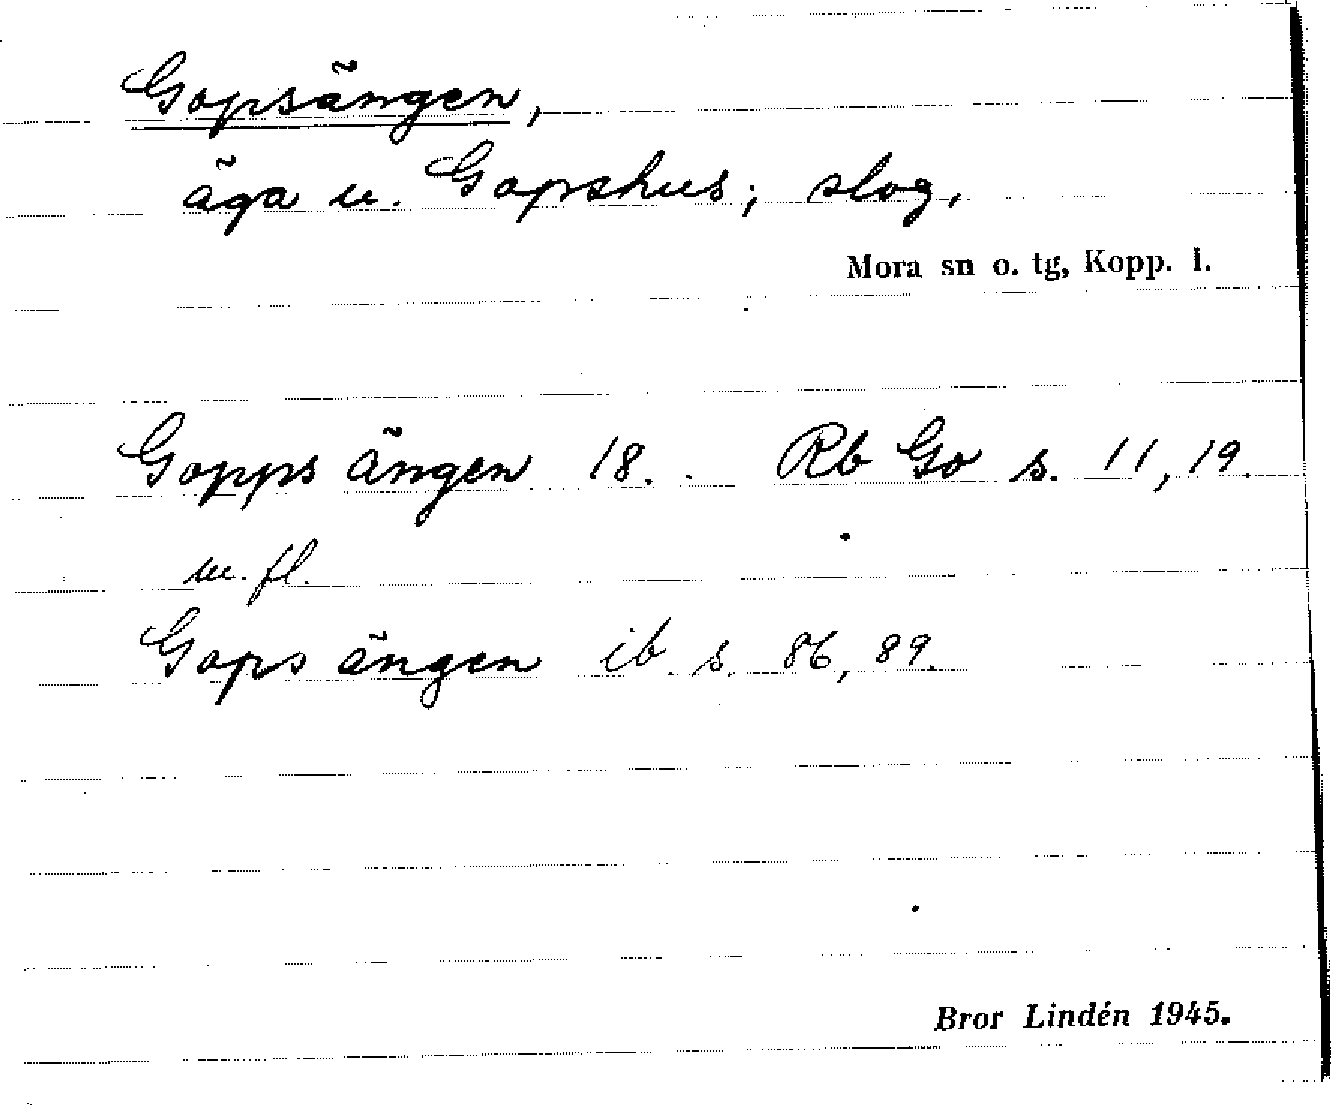 Gopsängen,
äga u. Gopshus; slog.
Mora sn o. tg, Kopp. l.
Gopps ängen 18.. Rb Go s. 11, 19.
m. fl.
Gops ängen ib. s. 86, 89.
Bror Lindén 1945.